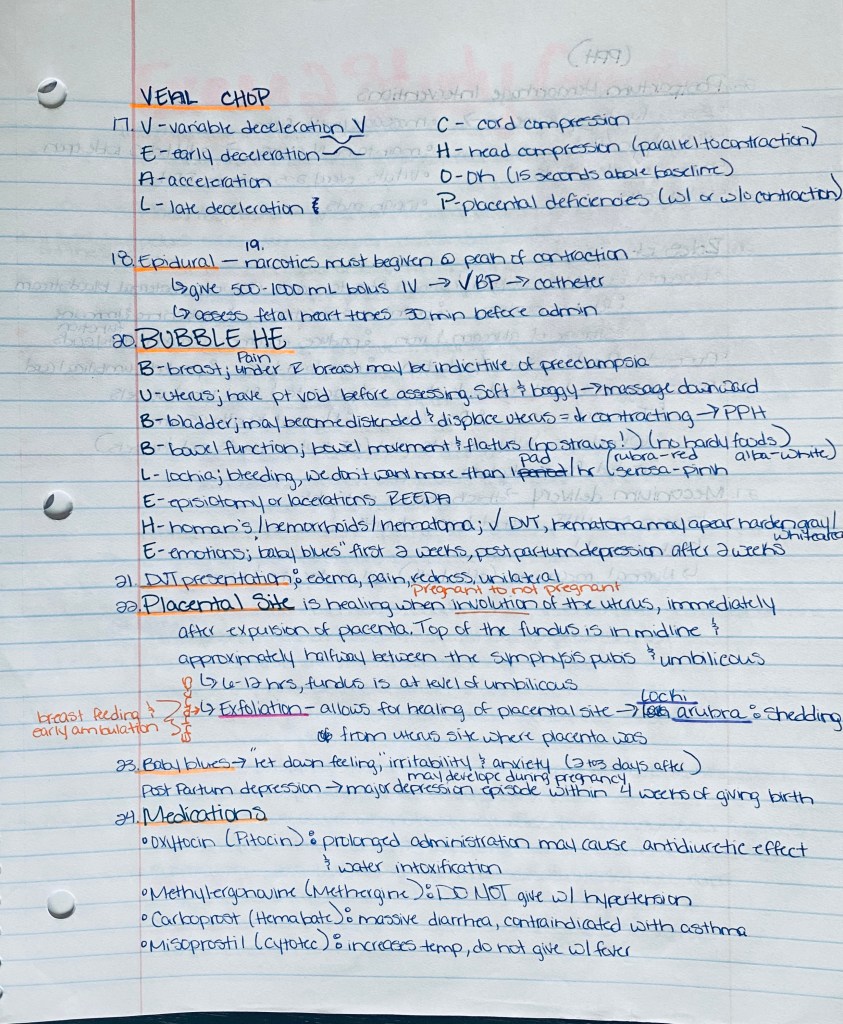 VEAL CHOP
17. V-variable deceleration V C - cord compression
E-early deceleration H-head compression (parallel to contraction)
A-acceleration O-OK (15 seconds above baseline)
L-late deceleration & P-placental deficiencies (w/ or w/o contraction)
19.
18. Epidural - narcotics must be given @ peak of contraction
↳give 500-1000 mL bolus IV → √BP → catheter
↳ assess fetal heart tones 30 min before admin
20. BUBBLE HE
Pain
B-breast; under R breast may be indicitive of preeclampsia
U-uterus; have pt void before assessing. Soft & boggy → massage downward
B-bladder; may become distended & displace uterus = ↓ contracting → PPH
B-bowel function; bowel movement & flatus (no straws!) (no hardy foods)
pad (rubra-red alba-white)
L-lochia; bleeding, we don't want more than 1 period/hr (serosa-pink
E-episiotomy or lacerations REEDA
H-homan's/hemorrhoids/hematoma; √ DVT, hematoma may apear harden gray/
whiteared
E-emotions; "baby blues" first 2 weeks, postpartum depression after 2 weeks
21. DVT presentation: edema, pain, redness, unilateral
pregnant to not pregnant
22. Placental Site is healing when involution of the uterus, immediately
after expulsion of placenta. Top of the fundus is in midline &
approximately halfway between the symphysis pubis & umbilicous
↳ 6-12 hrs, fundus is at level of umbilicous
Lochi
breast feeding & ↳ Exfoliation - allows for healing of placental site → arubra: shedding
early ambulation from uterus site where placenta was
23. Baby blues → "let down feeling," irritability & anxiety (2 to 3 days after)
may develope during pregnancy
Post Partum depression → major depression episode within 4 weeks of giving birth
24. Medications
• Oxytocin (Pitocin): prolonged administration may cause antidiuretic effect
& water intoxification
• Methylergonavine (Methergine): DO NOT give w/ hypertension
• Carboprost (Hemabate): massive diarrhea, contraindicated with asthma
• Misoprostil (Cytotec): increases temp, do not give w/ fever